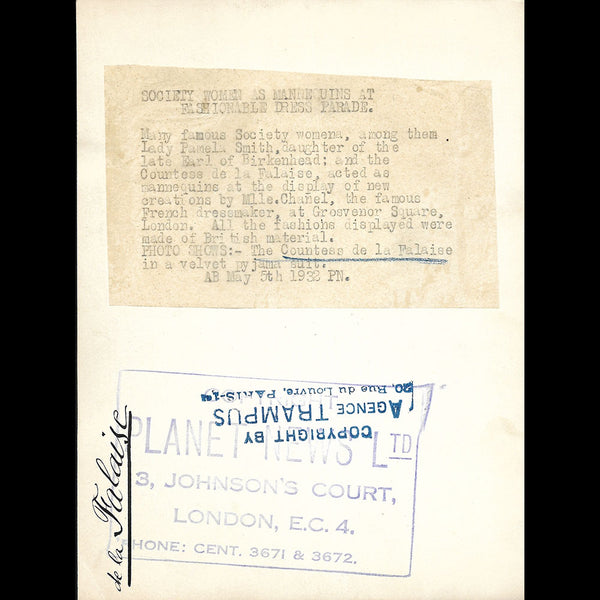 SOCIETY WOMEN AS MANNEQUINS AT
FASHIONABLE DRESS PARADE.
Many famous Society womena, among them
Lady Pamela Smith, daughter of the
late Earl of Birkenhead; and the
Countess de la Falaise, acted as
mannequins at the display of new
creations by Mlle.Chanel, the famous
French dressmaker, at Grosvenor Square,
London. All the fashions displayed were
made of British material.
PHOTO SHOWS:- The Countess de la Falaise
in a velvet pyjama suit.
AB May 5th 1932 PN.
COPYRIGHT BY
AGENCE TRAMPUS
20, Rue du Louvre, PARIS-1er
COPYRIGHT
PLANET NEWS LTD
3, JOHNSON'S COURT,
LONDON, E.C. 4.
PHONE: CENT. 3671 & 3672.
de la Falaise